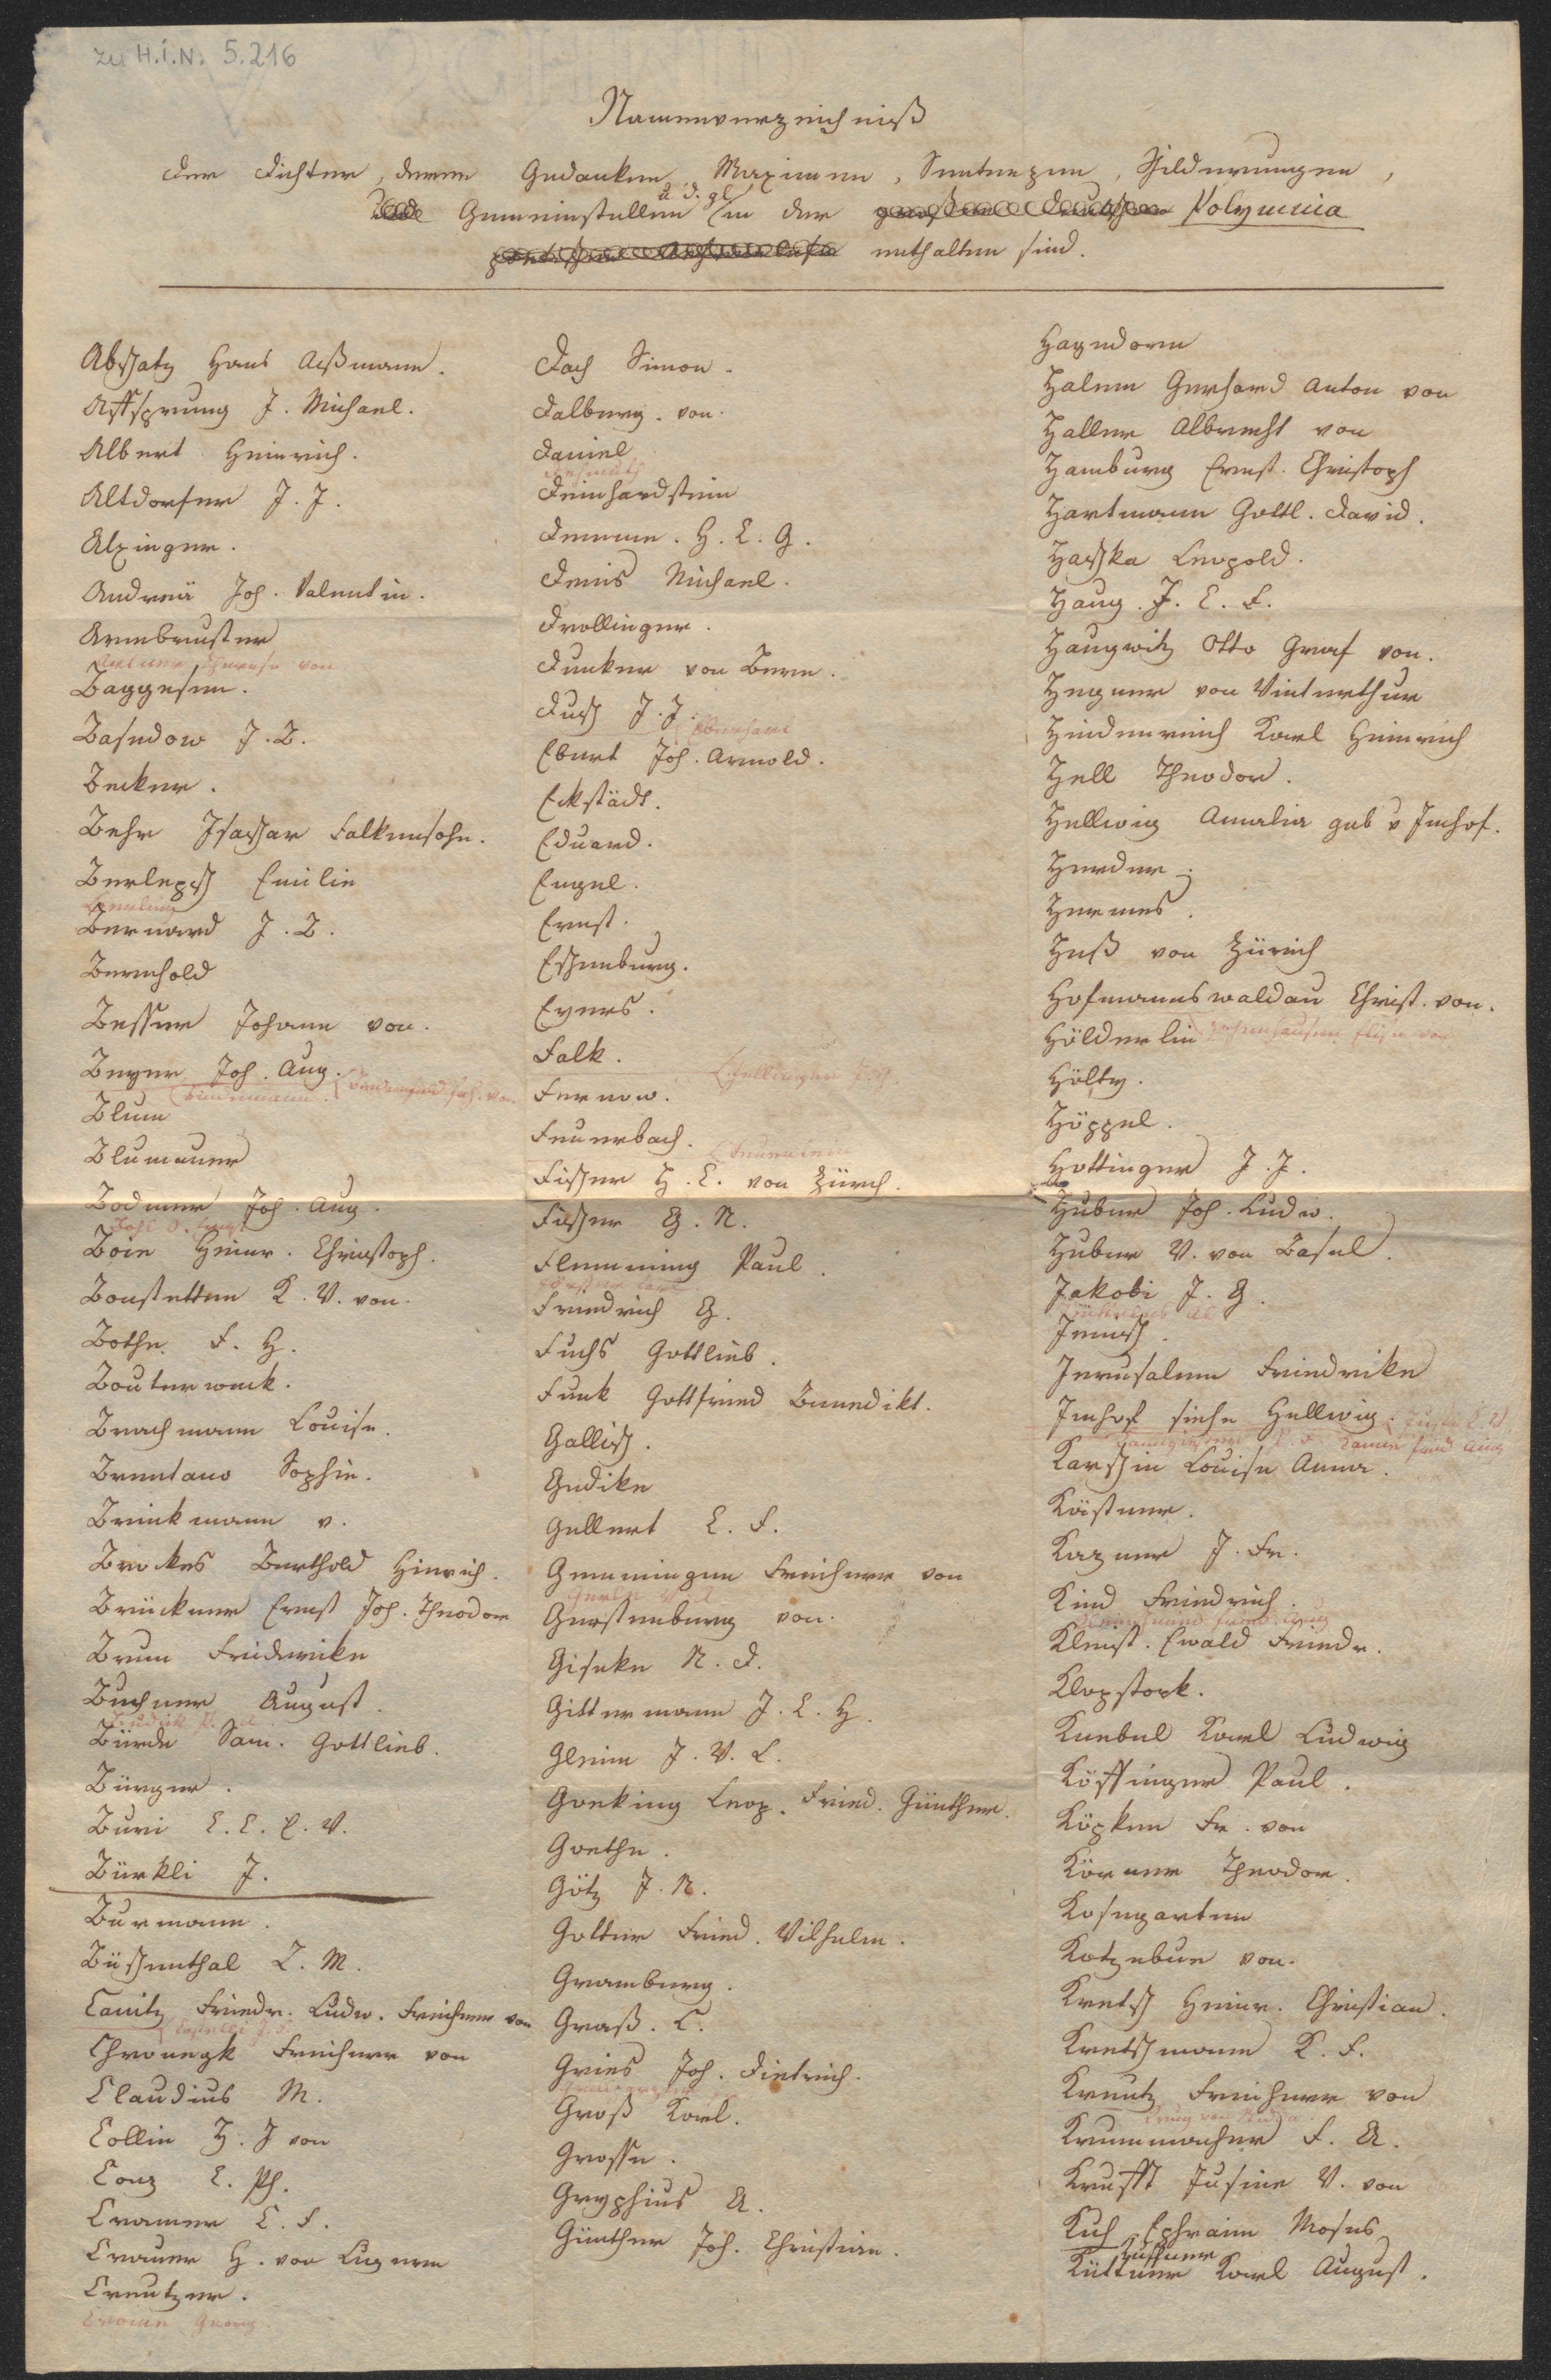 zu H.I.N. 5.216
Namenverzeichniß
der Dichter, deren Gedanken, Maximen, Sentenzen, Schilderungen,
Gemeinstellen u. d. gl. in der großen deutschen Polymnia
enthalten sind.
Abschatz Hans Aßmann.
Affsprung J. Michael.
Albert Heinrich.
Altdorfer J. J.
Alxinger.
Andreä Joh. Valentin.
Armbruster
Artner Therese von
Baggesen.
Basedow J. B.
Becker.
Behr Isaschar Falkensohn.
Berlepsch Emilie
Bernard J. B.
Bernhold
Besser Johann von.
Beyer Joh. Aug.
Blum
Blumauer
Bodmer Joh. Aug.
Boie Heinr. Christoph.
Bonstetten K. V. von.
Bothe F. H.
Bouterweck.
Brachmann Louise.
Brentano Sophie.
Brinkmann v.
Brockes Berthold Hinrich.
Brückner Ernst Joh. Theodor
Brun Friderike
Buchner August.
Bürde Sam. Gottlieb.
Bürger.
Buri E. C. L. V.
Bürkli J.
Burmann.
Büschenthal L. M.
Canitz Friedr. Ludw. Freiherr von
Chronegk Freiherr von
Claudius M.
Collin H. J von
Conz C. Ph.
Cramer C. F.
Crauer H. von Luzern
Creutzer.
Crome Georg.
Dach Simon.
Dalberg. von.
Daniel
Deinhardstein
Demme. H. C. G.
Denis Michael.
Drollinger.
Dunker von Bern.
Dusch J. J.
Eberhard
Ebert Joh. Arnold.
Eckstädt.
Eduard.
Engel.
Ernst.
Eschenburg.
Evers.
Falk.
Fernow.
Feuerbach.
Fischer H. C. von Zürch.
Fischer G. N.
Flemming Paul.
Friedrich G.
Fuchs Gottlieb.
Funk Gottfried Benedikt.
Gallisch.
Gedike
Gellert C. F.
Gemmingen Freiherr von
Gerstenberg von.
Giseke N. D.
Gittermann J. C. H.
Gleim J. W. L.
Goeking Leop. Fried. Günther.
Goethe.
Götz J. N.
Gotter Fried. Wilhelm.
Gramberg.
Graß. C.
Gries Joh. Dietrich.
Grillparzer
Groß Karl.
Grosse.
Gryphius A.
Günther Joh. Christian.
Hagedorn
Halem Gerhard Anton von
Haller Albrecht von
Hamburg Ernst. Christoph
Hartmann Gottl. David.
Haschka Leopold.
Haug. J. C. F.
Haugwitz Otto Graf von.
Hegner von Winterthur
Heidenreich Karl Heinrich
Hell Theodor.
Hellwig Amalia geb v Imhof.
Herder.
Hermes.
Heß von Zürich
Hofmannswaldau Christ. von.
Hölderlin Hohenhausen Elise von
Hölty.
Höppel.
Hottinger J. J.
Huber Joh. Ludw.
Huber V. von Basel.
Jakobi J. G.
Jenisch.
Jerusalem Friedrike
Imhof siehe Hellwig.
Karschin Louise Anna.
Kästner.
Kazner J. Fr.
Kind Friedrich.
Kleist. Ewald Friedr.
Klopstock.
Knebel Karl Ludwig
Köffinger Paul.
Köpken Fr. von
Körner Theodor.
Kosegarten
Kotzebue von.
Kretsch Heinr. Christian.
Kretschmann K. F.
Kreutz Freiherr von
Krug von Nidda
Krummacher F. A.
Krufft Justine V. von
Kuh Ephraim Moses
Kuffner
Küttner Karl August.